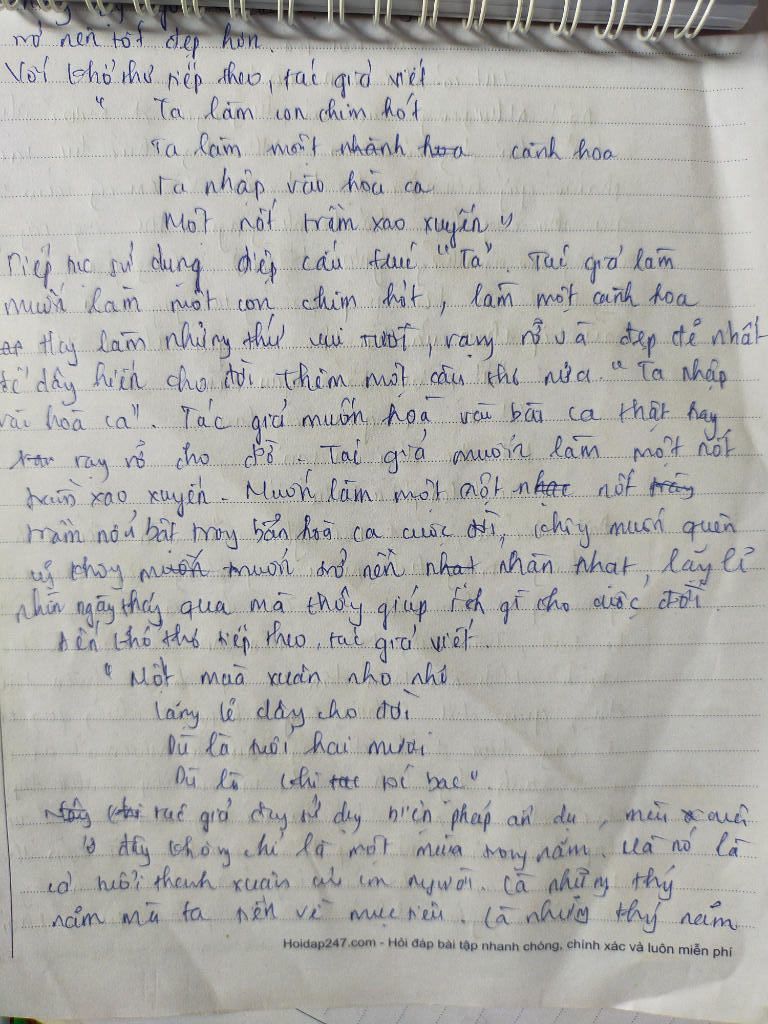 nở nên tốt đẹp hơn.
Với khổ thơ tiếp theo, tác giả viết
" Ta làm con chim hót
Ta làm một nhành hoa cành hoa
Ta nhập vào hoà ca
Một nốt trầm xao xuyến"
Tiếp tục sử dụng điệp cấu trúc "Ta". Tác giả làm
muốn làm một con chim hót, làm một cành hoa
Hay làm những thứ vui tươi, rạng rỡ và đẹp đẽ nhất
để dây hiến cho đời thêm một câu thơ nữa. "Ta nhập
vào hoà ca". Tác giả muốn hoà vào bài ca thật hay
rạng rỡ cho đời. Tác giả muốn làm một nốt
trầm xao xuyến. Muốn làm một một nhạc nốt
trầm nổi bật trong bản hoà ca cuộc đời, không muốn quên
không muốn muốn trở nên nhạt nhàn nhạt, lặng lẽ
nhìn ngày tháng qua mà không giúp ích gì cho cuộc đời.
Đến khổ thơ tiếp theo, tác giả viết.
" Một muà xuân nho nhỏ
Lặng lẽ dâng cho đời
Dù là tuổi hai mươi
Dù là khi tóc bạc".
tác giả đã sử dụng biện pháp ẩn dụ, mùa xuân
ở đây không chỉ là một mùa trong năm. Mà nó là
cả tuổi thanh xuân của con người. Là những tháng
năm mà ta tiến về mục tiêu. Là những tháng năm
Hoidap247.com - Hỏi đáp bài tập nhanh chóng, chính xác và luôn miễn phí